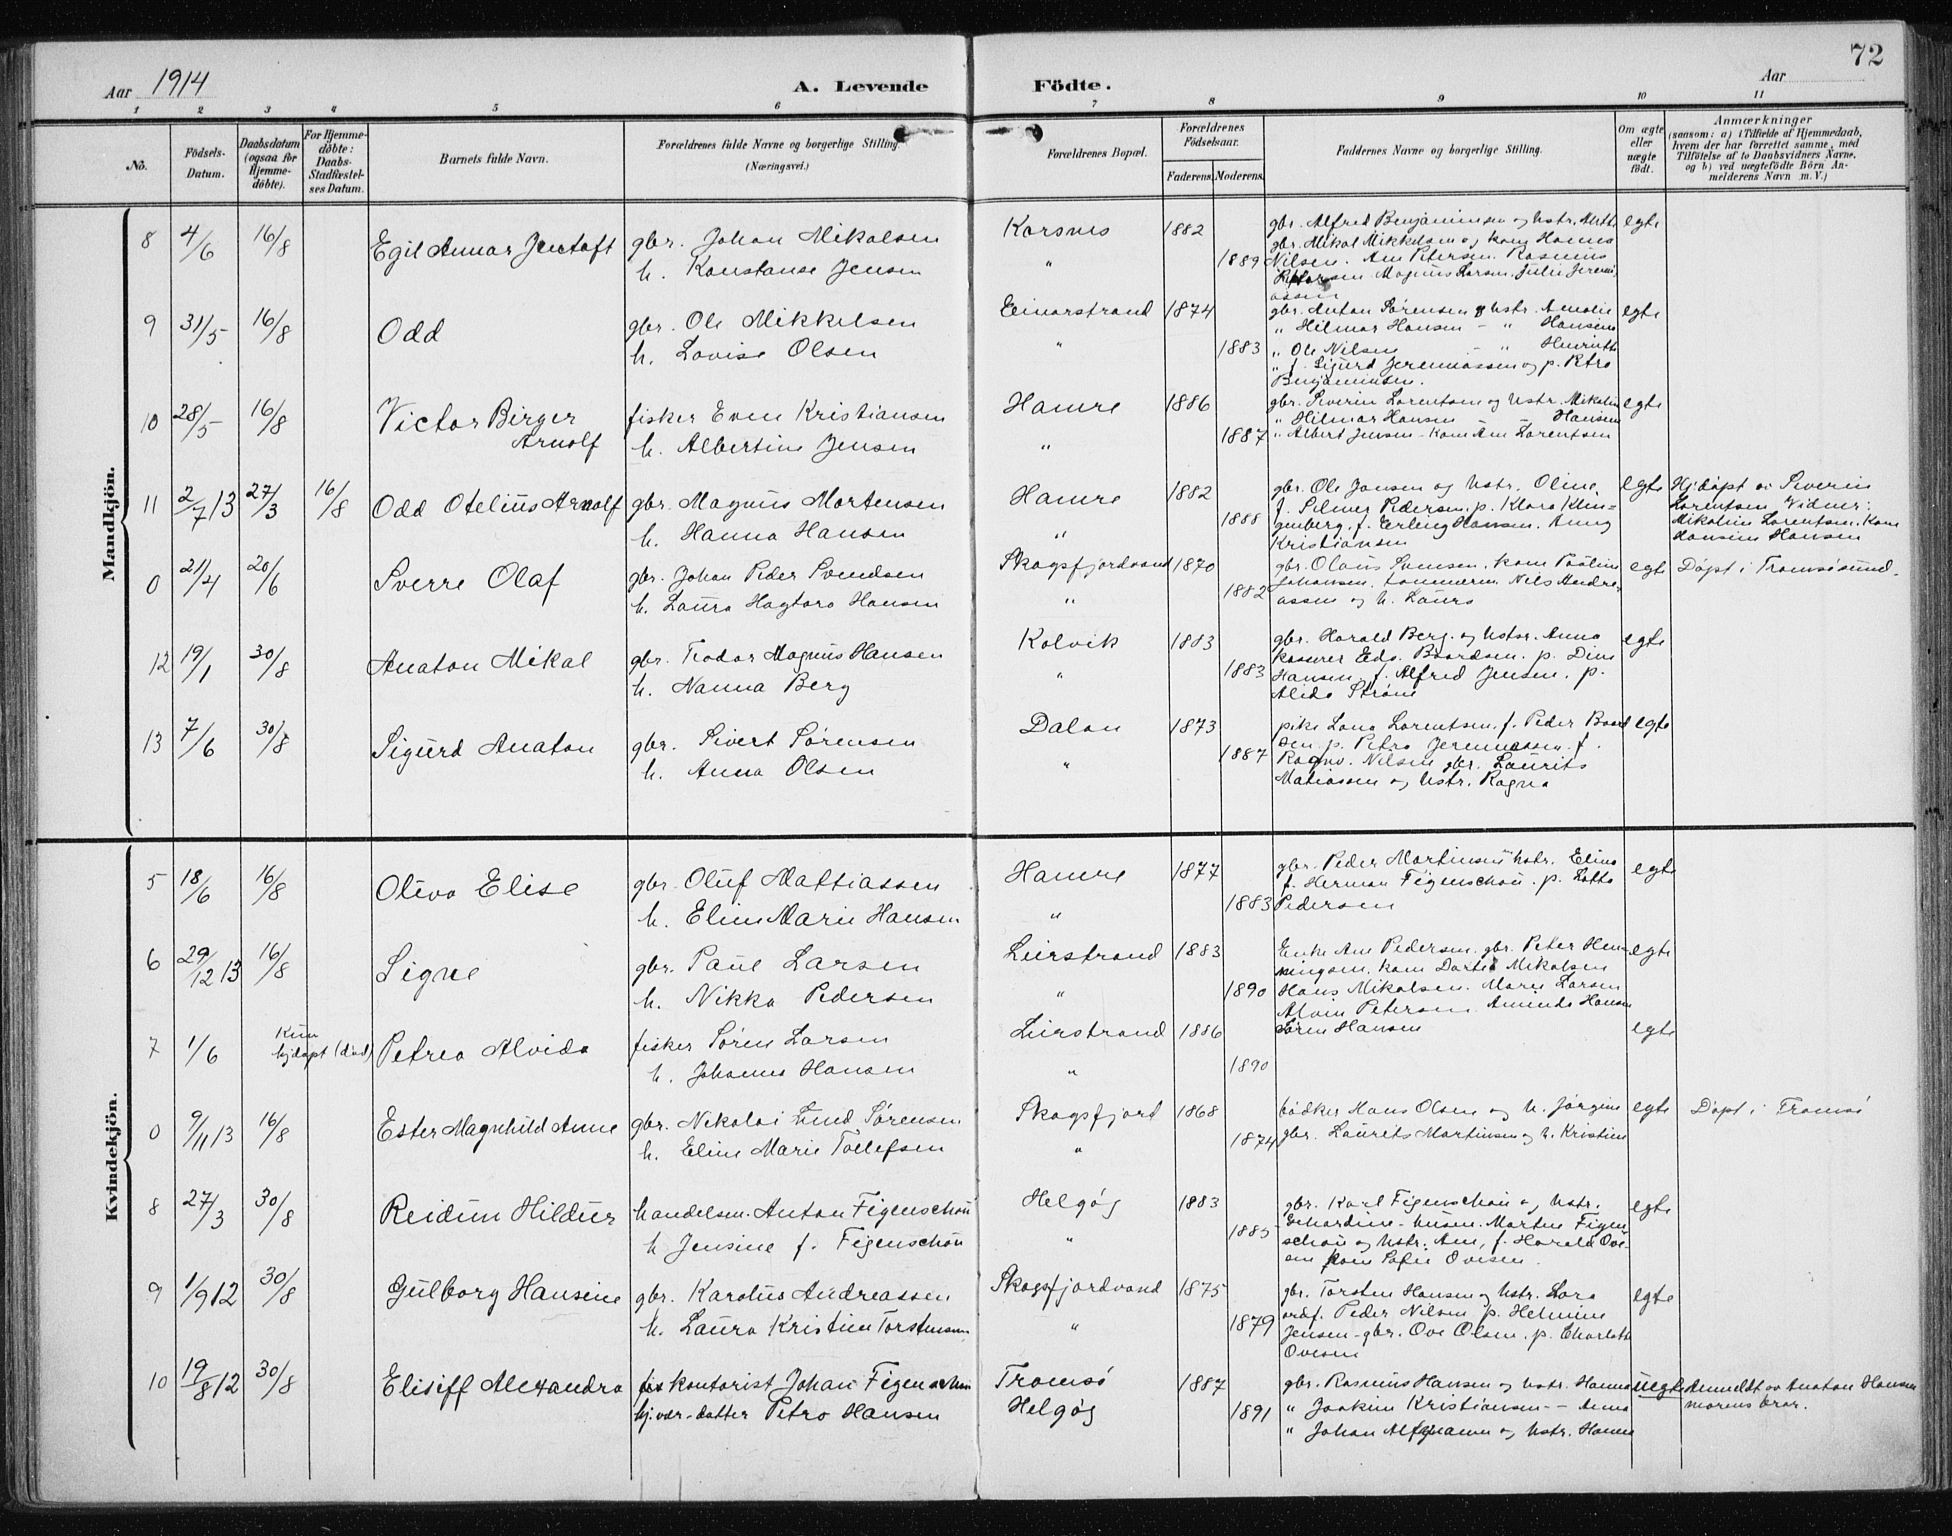 72
Aar 1914
A. Levende Födte.
Aar
1 2 3 4 5 6 7 8 9 10 11
No.
Födsels-Datum.
Daabsdatum (ogsaa for Hjemmedöbte).
For Hjemmedöbte: Daabs-Stadfæstelses Datum.
Barnets fulde Navn.
Forældrenes fulde Navne og borgerlige Stilling. (Næringsvei.)
Forældrenes Bopæl.
Forældrenes Födselsaar.
Faderens. Moderens.
Faddernes Navne og borgerlige Stilling.
Om ægte eller uægte födt.
Anmærkninger
(saasom: a) i Tilfælde af Hjemmedaab, hvem der har forrettet samme, med Tilföielse af to Daabsvidners Navne, og b) ved uægtefödte Börn Anmelderens Navn m. V.)
Mandkjön.
8 4/6 16/8 Egil Annar Jentoft gbr. Johan Mikalsen Korsnes 1882 gbr. Alfred Benjaminsen og hstr. egte
gbr. Mikal Mikkelsen og kone Hanna
h. Konstanse Jensen " 1889 Nilsen. Ane Petersen. Rasmus
Magnus Larsen. Julie
9 31/5 16/8 Odd gbr. Ole Mikkelsen Einarstrand 1874 gbr. Anton Sørensen og hstr. Amalie egte
" Hilmar Hansen - " Hansine
h. Lovise Olsen " 1883 " Ole Nilsen - " Henriette
" f. Sigurd Jeremiassen og p. Petra
Benjaminsen.
10 28/5 16/8 Victor Birger Arnolf fisker Even Kristiansen Hamre 1886 gbr. Severin Lorentsen og hstr. Mikaline egte
" Hilmar Hansen Hansine
h. Albertine Jensen " 1887 " Albert Jensen - kone Ane Lorentsen
11 2/7 13 27/3 16/8 Odd Otelius Arnolf gbr. Magnus Mortensen Hamre 1882 gbr. Ole Jansen og hstr. Oline egte Hjdøpt av Severin
f. Pedersen. p. Klara Klin- Lorentsen Vidner:
h. Hanna Hansen " 1888 genberg. f. Erling Hansen. Anny Mikaline Lorentsen. Kone
Kristiansen Hansine Hansen
0 21/4 20/6 Sverre Olaf gbr. Johan Peder Svendsen Skogsfjordvand 1870 gbr. Olaus Svensen. kone Pauline egte Døpt i Tromsøsund.
Johansen. tømmerm. Nils Andre-
h. Laura Hagtora Hansen " 1882 assen og h. Laura
12 19/1 30/8 Anaton Mikal gbr. Teodor Magnus Hansen Kalvik 1883 gbr. Harald Berg. og hstr. Anna egte
kaserer Edv. Baardsen. p. Dine
h. Nanna Berg " 1883 Hansen. f. Alfred Jensen. p.
Alida Strøm
13 7/6 30/8 Sigurd Anaton gbr. Sivert Sørensen Dalan 1873 pike Lorentsen. f. Peder Baard egte
sen. p. Petra Jeremiassen. f.
h. Anna Olsen " 1887 Ragnv. Nilsen gbr. Laurits
Matiassen og hstr. Ragna
Kvindekjön.
5 18/6 16/8 Oliva Elise gbr. Oluf Mattiassen Hamre 1877 gbr. Peder Martinsen hstr. Elina egte
f. Herman Figenschou. p. Lotta
h. Eline Marie Hansen " 1883 Pedersen
6 29/12 13 16/8 Signe gbr. Paul Larsen Leirstrand 1883 Enke Ane Pedersen. gbr. Peter Hen- egte
ningsen. kone Dortea Mikalsen
h. Nikka Pedersen " 1890 Hans Mikalsen. Marie Larsen
Alvin Petersen Amanda Hansen
7 1/6 Kun hjdøpt (død) Petrea Alvida fisker Søren Larsen Leirstrand 1886 Søren Hansen egte
h. Johanna Hansen " 1890
0 9/11 13 16/8 Ester Magnhild Anne gbr. Nikolai Lund Sørensen Skogsfjord 1868 bødker Hans Olsen og h. Jørgine egte Døpt i Tromsø
h. Eline Marie Tollefsen " 1874 gbr. Laurits Martinsen og h. Kristine
8 27/3 30/8 Reidun Hildur handelsm. Anton Figenschou Helgøy 1883 gbr. Karl Figenschou og hstr. egte
Martin Figen
h Jensine f. Figenschou " 1885 schou og hstr. Ane, f. Harald Ove-
sen kone Sofie Ovesen.
9 1/9 12 30/8 Gulborg Hansine gbr. Karolus Andreassen Skogsfjordvand 1875 gbr. Torsten Hansen og hstr. Lora egte
ordf. Peder Nilsen p. Helmine
h. Laura Kristine Torstensen " 1879 Jensen - gbr. Ove Olsen. p. Charlotte
Ovesen
10 19/8 12 30/8 Elisiff Alexandra kontorist Johan Figenschou Tromsø 1887 gbr. Rasmus Hansen og hstr. Hanna uegte Anmeldt av Anaton Hansen
hj.vær. datter Petra Hansen Helgøy 1891 " Joakim Kristiansen - - Anna morens bror.
" Johan og hstr. Hanna